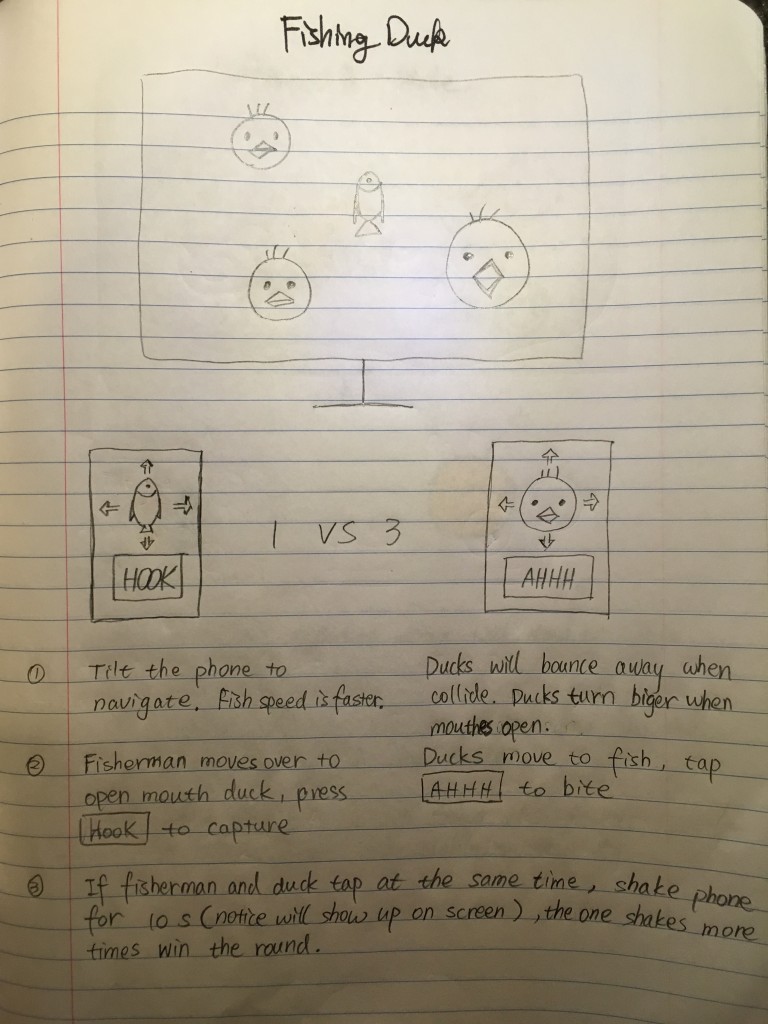 Fishing Duck
HOOK
1 VS 3
AHHH
① Tilt the phone to
navigate. Fish speed is faster.
Ducks will bounce away when
collide. Ducks turn biger when
mouthes open.
② Fisherman moves over to
open mouth duck, press
Hook to capture
Ducks move to fish, tap
AHHH to bite
③ If fisherman and duck tap at the same time, shake phone
for 10 s (notice will show up on screen), the one shakes more
times win the round.